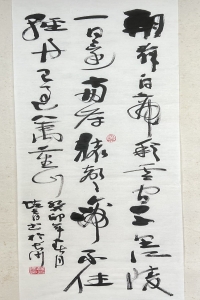 朝辞白帝彩云间千里江陵
一日還兩岸猿聲啼不住
輕舟已過萬重山
癸卯年春月